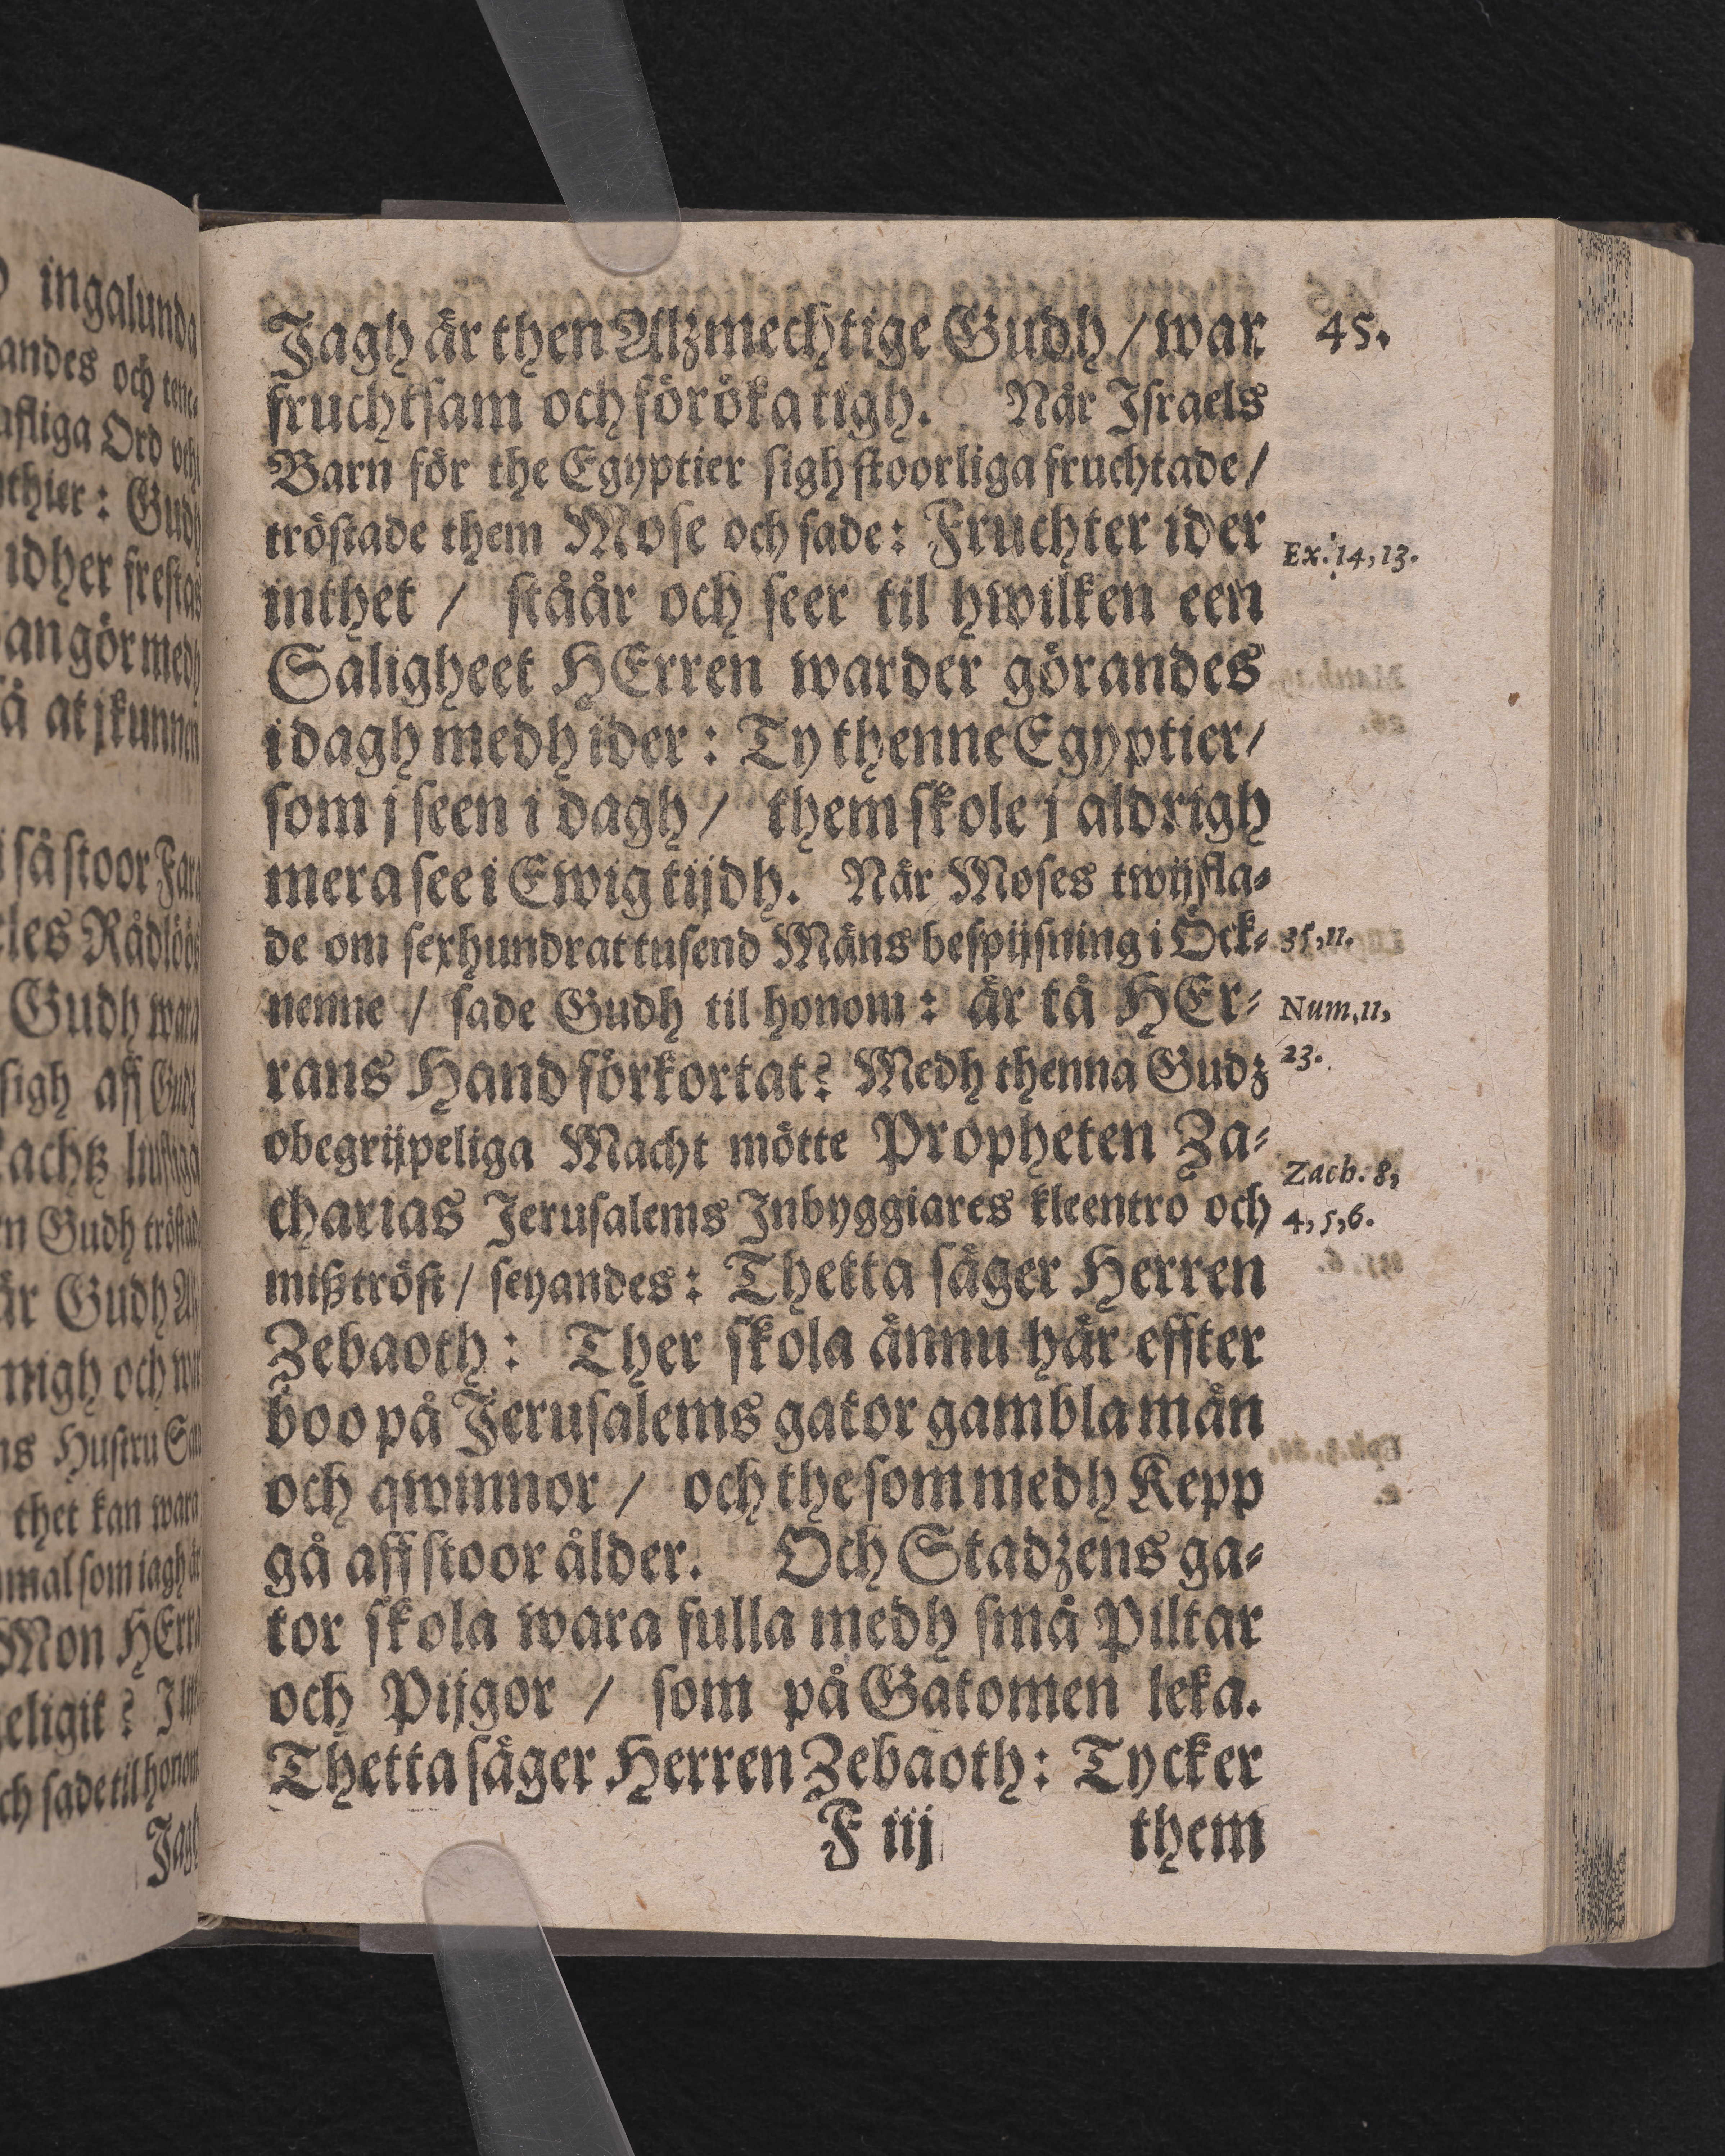 45.
Jagh är then Alzmechtige Gudh / war
fruchtsam och föröka tigh. När Israels
Barn för the Egyptier sigh stoorliga fruchtade /
tröstade them Mose och sade: Fruchter ider
inthet / ståår och seer til hwilken een
Saligheet HErren warder görandes
i dagh medh ider: Ty thenne Egyptier /
som j seen i dagh / them skole j aldrigh
mera see i Ewig tijdh. När Moses twijfla-
de om sexhundrat tusend Mäns bespijsning i Öck-
nenne / sade Gudh til honom: är tå HEr-
rans Hand förkortat? Medh thenna Gudz
obegrijpeliga Macht mötte Propheten Za-
charias Jerusalems Inbyggiares kleentro och
mißtröst / seyandes: Thetta säger Herren
Zebaoth: Ther skola ännu här effter
boo på Jerusalems gator gambla män
och qwinnor / och the som medh Kepp
gå aff stoor ålder. Och Stadzens ga-
tor skola wara fulla medh små Piltar
och Pijgor / som på Gatomen leka.
Thetta säger Herren Zebaoth: Tycker
F iij them
Ex. 14, 13.
35, 11.
Num. 11,
23.
Zach. 8,
4, 5, 6.
ingalunda
andes och
Ord
Gudh
idher frestas
an gör medh
å at j kunnen
i så stoor
les Rådlöös
Gudh wara
sigh aff Gudz
n Gudh
är Gudh
migh och
ns Hustru
thet kan wara
som iagh
Mon
eligit?
ch sade til honom
Jagh